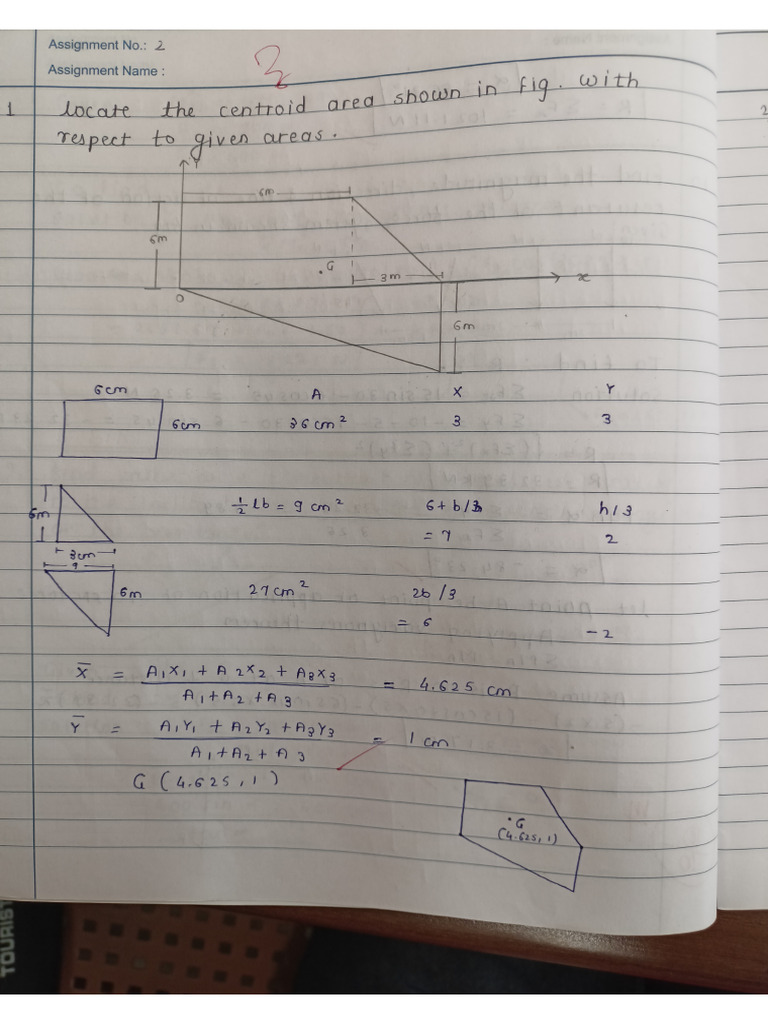 Assignment No.: 2
Assignment Name :
3
1 Locate the centroid area shown in fig. with
respect to given areas.
Y
6m
6m
G
3m
x
O
6m
6cm A X Y
6cm 36 cm² 3 3
6m 1/2 Lb = 9 cm² 6 + b/3 h/3
= 7 2
3cm
9
6m 27 cm² 2b/3
= 6 -2
X̄ = A₁X₁ + A₂X₂ + A₃X₃ / A₁ + A₂ + A₃ = 4.625 cm
Ȳ = A₁Y₁ + A₂Y₂ + A₃Y₃ / A₁ + A₂ + A₃ = 1 cm
G (4.625, 1)
G
(4.625, 1)
TOURIST
2